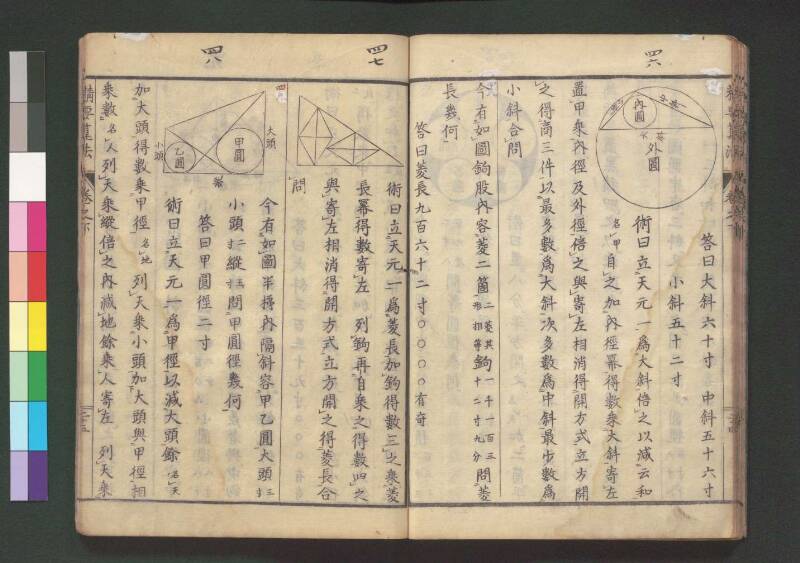 四六
内圓
外圓
答曰大斜六十寸 中斜五十六寸
小斜五十二寸
術曰立天元一爲大斜倍之以減云和
名甲自之加內徑冪得數乘大斜寄左
置甲乘內徑及外徑倍之與寄左相消得開方式立方開
之得商三件以最多數爲大斜次多數爲中斜最少數爲
小斜合問
今有如圖鉤股內容菱二箇二菱其形相等鉤一千一百三十二寸九分問菱
長幾何
答曰菱長九百六十二寸〇〇〇〇有奇
四七
術曰立天元一爲菱長加鉤得數三之乘菱
長冪得數寄左 列鉤再自乘之得數四之
與寄左相消得開方式立方開之得菱長合
問
四八
大頭
小頭
甲圓
乙圓
縱
今有如圖半梯內隔斜容甲乙圓大頭
小頭 縱 問甲圓徑幾何
答曰甲圓徑二寸
術曰立天元一爲甲徑以減大頭餘名天
加大頭得數乘甲徑名地 列天乘小頭加大頭與甲徑相
乘數名人列天乘縱倍之內減地餘乘人寄左 列天乘
精要算法 卷之下